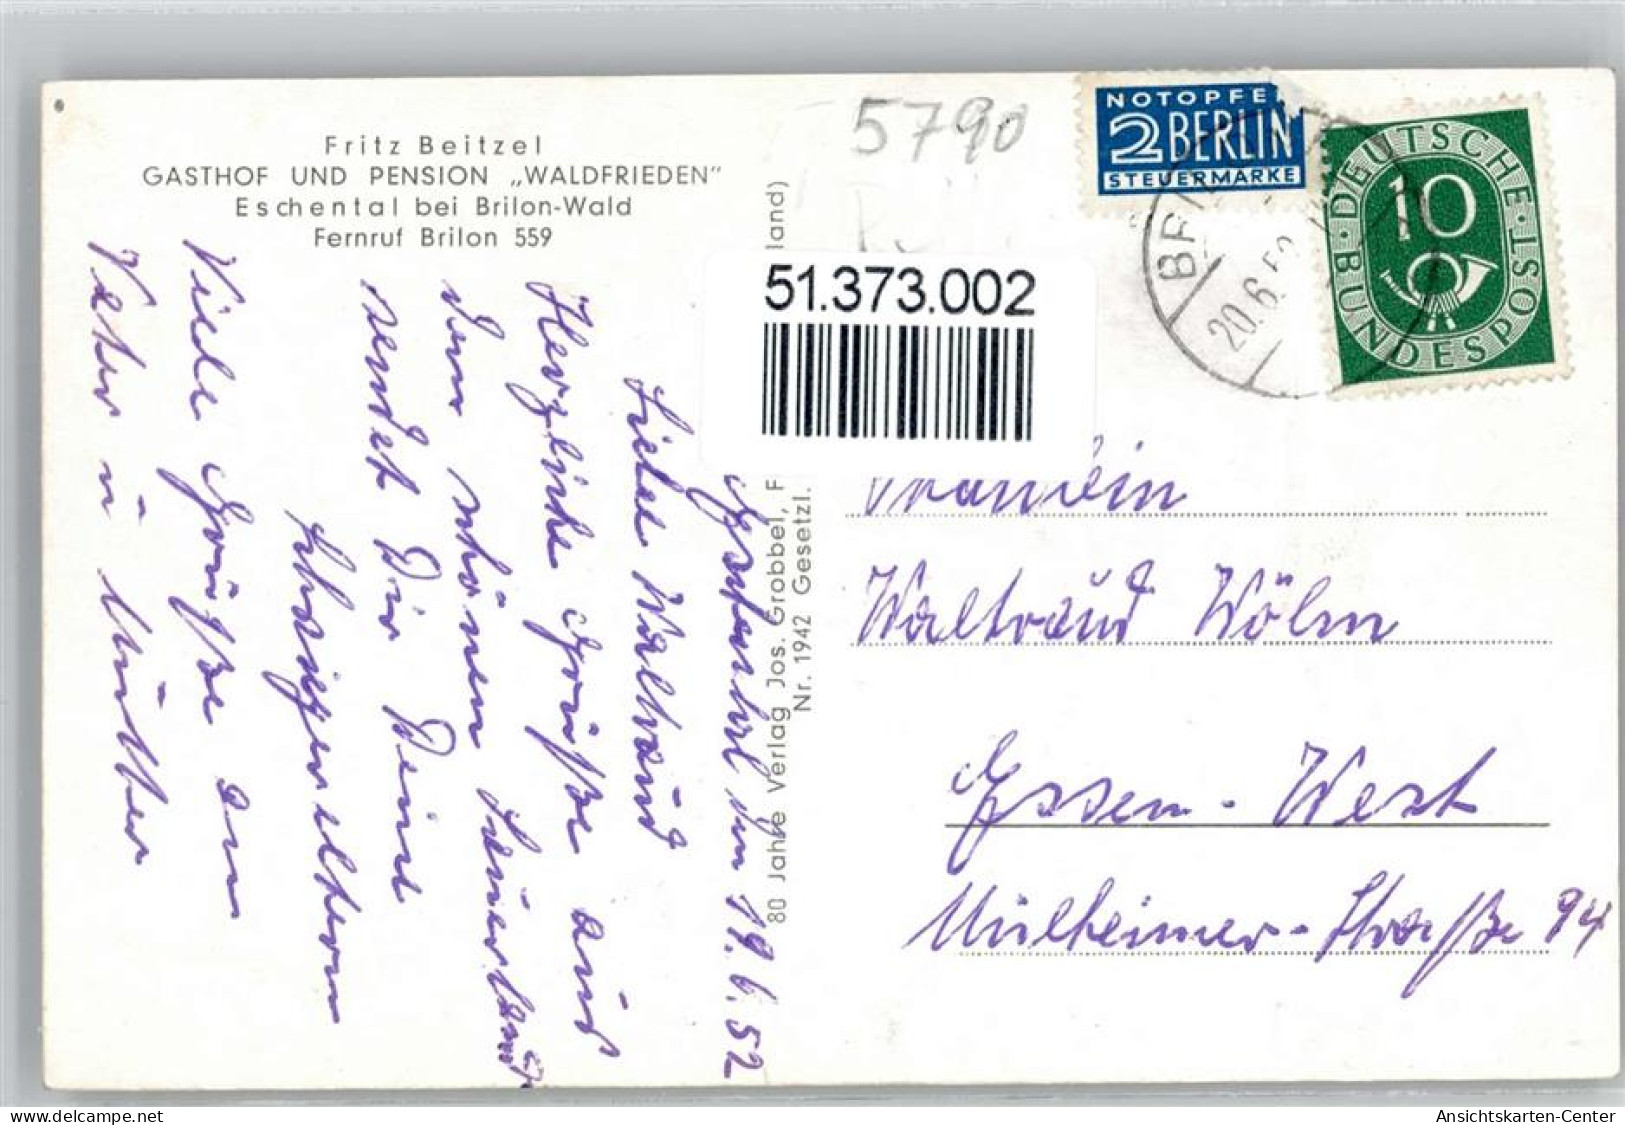 Fritz Beitzel
GASTHOF UND PENSION „WALDFRIEDEN“
Eschental bei Brilon-Wald
Fernruf Brilon 559
5790
NOTOPFE
2 BERLIN
STEUERMARKE
DEUTSCHE
BUNDESPOST
10
BRI
20.6.52
51.373.002
land)
80 Jahre Verlag Jos. Grobbel, F
Nr. 1942 Gesetzl.
den 19.6.52
Liebe Waltraud
Herzliche Grüße aus
dem schönen Sauerland
sendet Dir Deine
Schwiegereltern
Viele Grüße an
Vater u Mutter
Fräulein
Waltraud Wölm
Essen-West
Mülheimer-Straße 94
delcampe.net
Ansichtskarten-Center